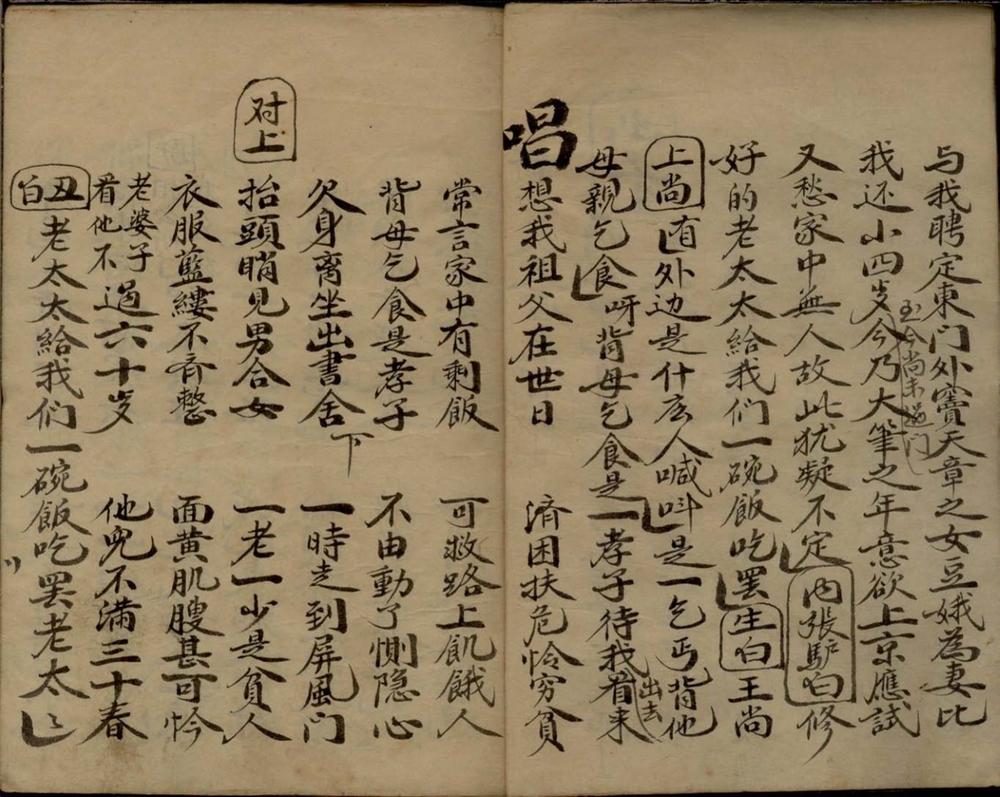 与我聘定東門外竇天章之女豆娥為妻比
我还小四岁今乃大筆之年意欲上京應試
至今尚未過门
又愁家中無人故此犹疑不定 内張馿白 修
好的老太太給我们一碗飯吃罢 生白 王尚
上尚 有外边是什庅人喊呌是一乞丐背他
母親乞食呀背母乞食是一孝子待我出去看来
唱
想我祖父在世日 済困扶危怜穷貧
常言家中有剩飯 可救路上飢餓人
背母乞食是孝子 不由動了惻隐心
欠身离坐出書舍 下 一時走到屏風门
对上
抬頭睄見男合女 一老一少是貧人
衣服藍縷不齐整 面黄肌膄甚可怜
老婆子看他不過六十岁 他兒不满三十春
丑白 老太太給我们一碗飯吃罢老太〻